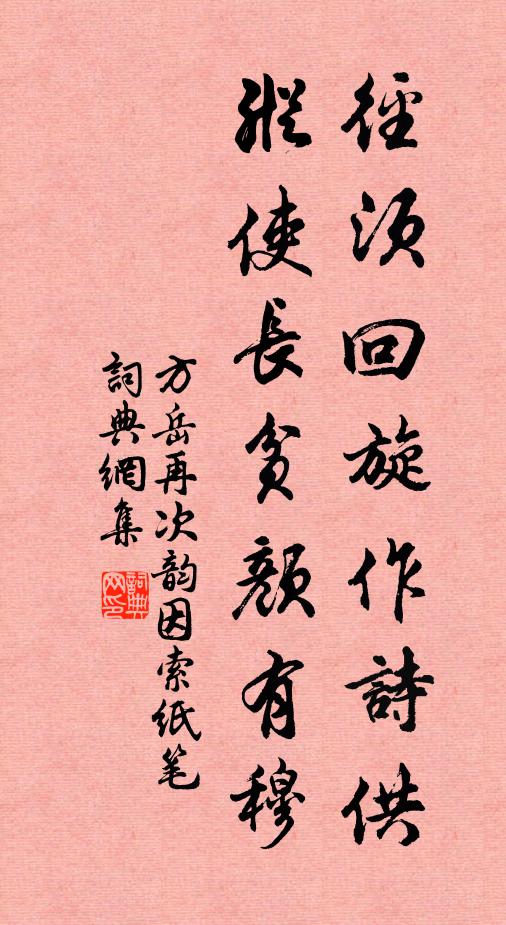 徑須回旋作詩供
縱使長貧顏有穆
方岳再次韵因索纸笔
詞典網集
詞典网印